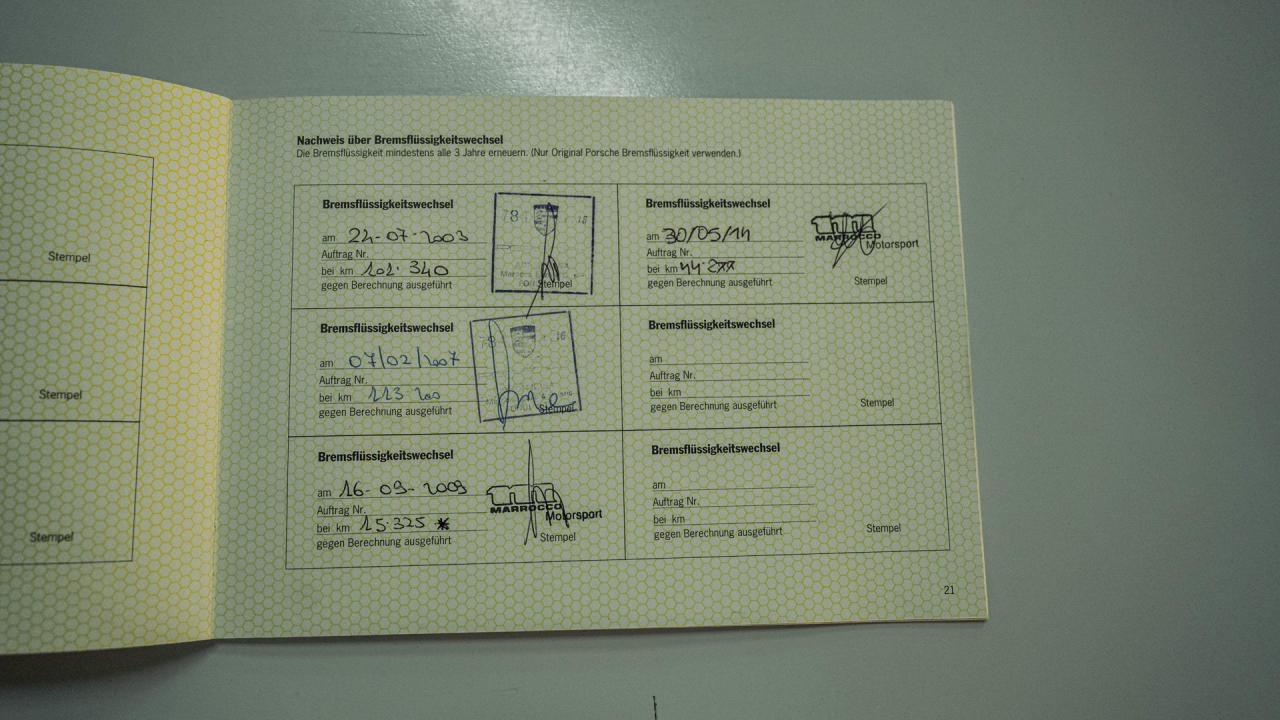 Stempel
Stempel
Stempel
Nachweis über Bremsflüssigkeitswechsel
Die Bremsflüssigkeit mindestens alle 3 Jahre erneuern. (Nur Original Porsche Bremsflüssigkeit verwenden.)
Bremsflüssigkeitswechsel
am 22-07-2003
Auftrag Nr.
bei km 101.340
gegen Berechnung ausgeführt
Stempel
Bremsflüssigkeitswechsel
am 07/02/2007
Auftrag Nr.
bei km 113.200
gegen Berechnung ausgeführt
Stempel
Bremsflüssigkeitswechsel
am 16-09-2009
Auftrag Nr.
bei km 15.325 *
gegen Berechnung ausgeführt
MARROCCO
Motorsport
Stempel
Bremsflüssigkeitswechsel
am 30/05/14
Auftrag Nr.
bei km
gegen Berechnung ausgeführt
MARROCCO
Motorsport
Stempel
Bremsflüssigkeitswechsel
am
Auftrag Nr.
bei km
gegen Berechnung ausgeführt
Stempel
Bremsflüssigkeitswechsel
am
Auftrag Nr.
bei km
gegen Berechnung ausgeführt
Stempel
21